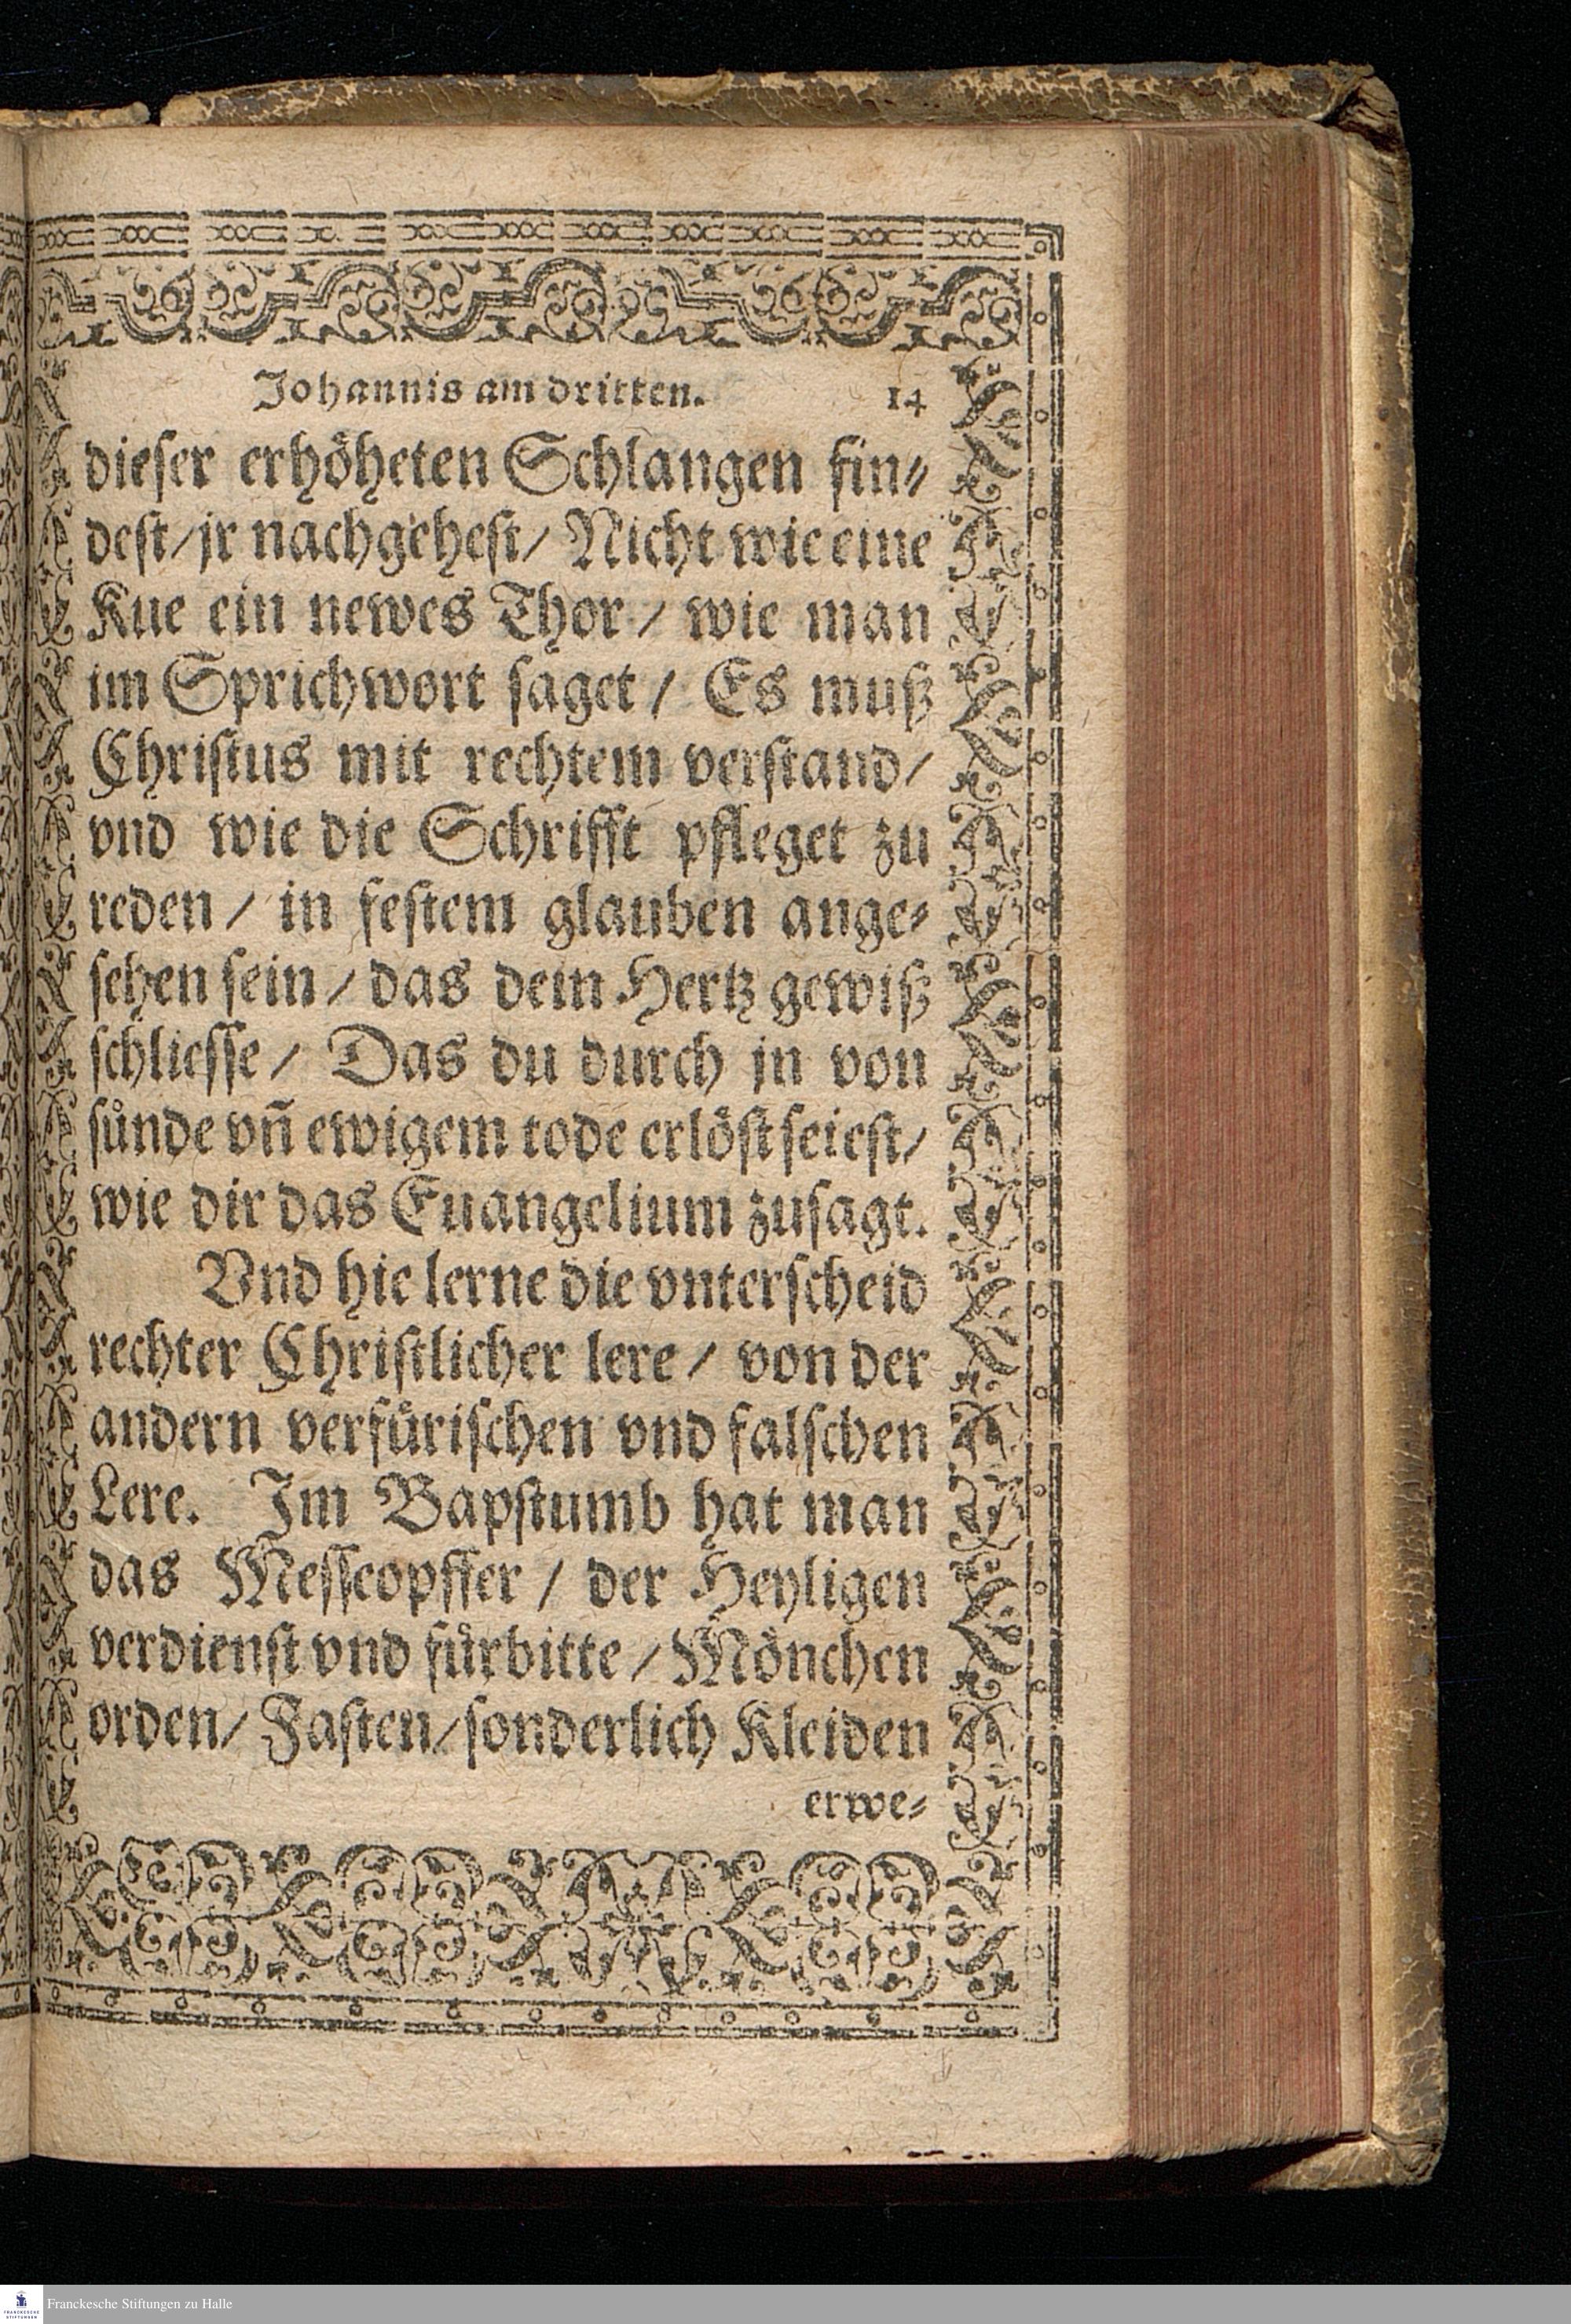 Johannis am dritten. 14
dieser erhöheten Schlangen fin-
dest/ jr nachgehest/ Nicht wie eine
Kue ein newes Thor/ wie man
im Sprichwort saget/ Es muß
Christus mit rechtem verstand/
vnd wie die Schrifft pfleget zu
reden/ in festem glauben ange-
sehen sein/ das dem Hertz gewiß
schliesse/ Das du durch jn von
sünde vñ ewigem tode erlöst seiest/
wie dir das Euangelium zusagt.
Vnd hie lerne die vnterscheid
rechter Christlicher lere/ von der
andern verfürischen vnd falschen
Lere. Im Bapstumb hat man
das Messeopffer/ der Heyligen
verdienst vnd fürbitte/ Mönchen
orden/ Fasten/ sonderlich Kleiden
erwe-
FRANCKESCHE
STIFTUNGEN
Franckesche Stiftungen zu Halle